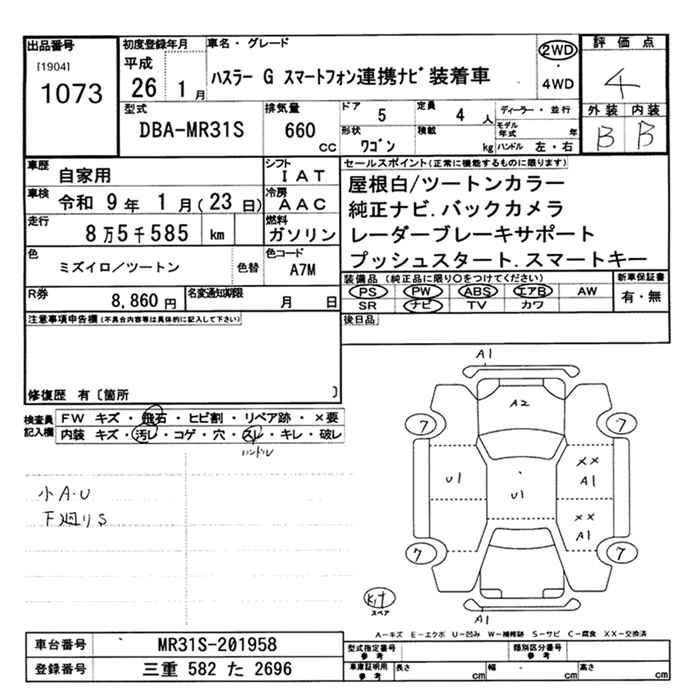 出品番号
[1904]
1073
初度登録年月
平成
26 1月
車名・グレード
ハスラー G スマートフォン連携ナビ装着車
2WD
・
4WD
評価点
4
外装 内装
B B
型式
DBA-MR31S
排気量
660
CC
ドア
5
定員
4 人
形状
ワゴン
積載
kg
ディーラー・並行
モデル年式 年
ハンドル 左・右
車歴
自家用
シフト
IAT
車検
令和 9年 1月(23日)
冷房
AAC
走行
8万5千585 km
燃料
ガソリン
色
ミズイロ/ツートン
色替
色コード
A7M
R券
8,860円
名変通知期限
月 日
セールスポイント(正常に機能するものに限ります)
屋根白/ツートンカラー
純正ナビ.バックカメラ
レーダーブレーキサポート
プッシュスタート.スマートキー
装備品(純正品に限り○をつけてください)
PS PW ABS エアB AW
SR ナビ TV カワ
新車保証書
有・無
後日品
注意事項申告欄(不具合内容等は具体的に記入して下さい)
修復歴 有〔箇所 〕
検査員記入欄
FW キズ・飛石・ヒビ割・リペア跡・×要
内装 キズ・汚レ・コゲ・穴・スレ・キレ・破レ
ハンドル
小A・U
下廻りS
A1
A2
7 7
U1
U1
XX
A1
XX
A1
7 7
A1
キット
スペア
A-キズ E-エクボ U-凹み W-補修跡 S-サビ C-腐食 XX-交換済
車台番号
MR31S-201958
登録番号
三重 582 た 2696
型式指定番号
参考
類別区分番号
参考
車庫証明用
参考
長さ cm
幅 cm
高さ cm